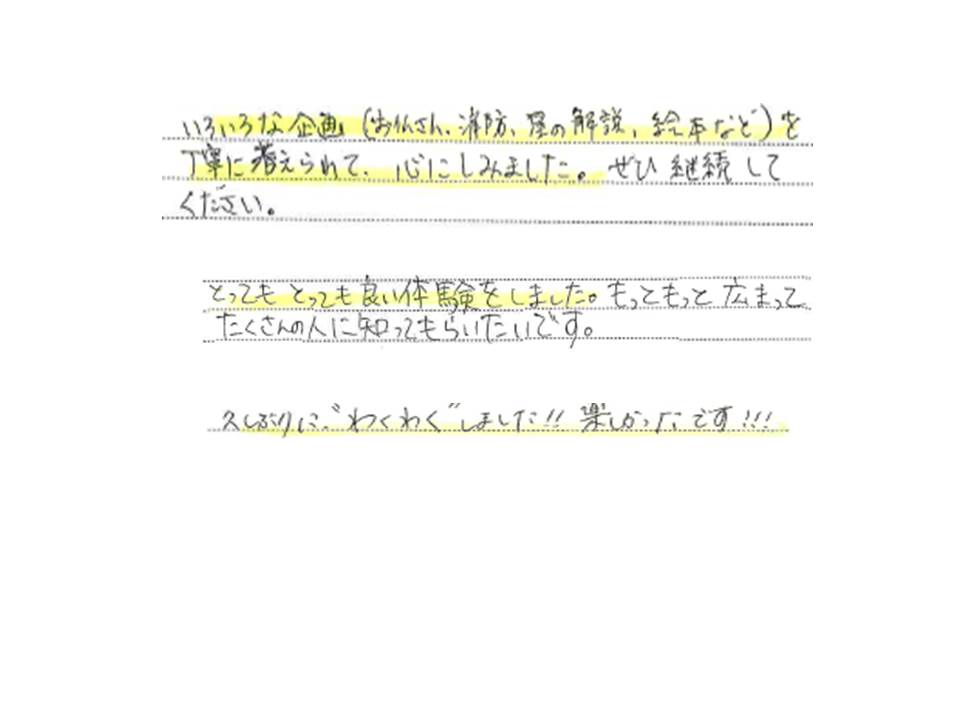 いろいろな企画(お仏さん、消防、星の解説、絵本など)を
丁寧に考えられて、心にしみました。ぜひ継続して
ください。
とってもとっても良い体験をしました。もっともっと広まって
たくさんの人に知ってもらいたいです。
久しぶりに、"わくわく"しました!!楽しかったです!!!